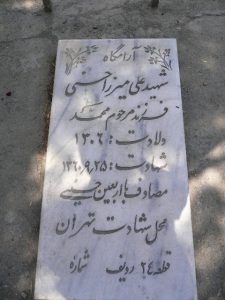 آرامگاه
شهید علی میرزا حسنی
فرزند مرحوم محمد
ولادت: ۱۳۰۶
شهادت: ۱۳۶۰،۹،۲۵
مصادف با اربعین حسینی
محل شهادت تهران
قطعه ۲۴ ردیف شماره